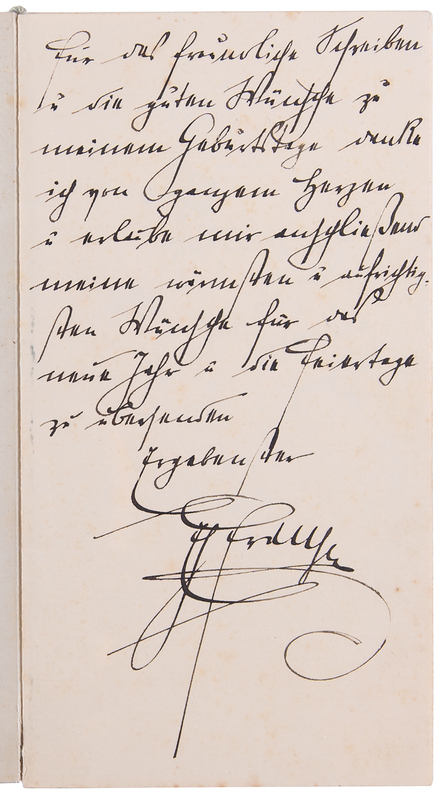 Für das freundliche Schreiben
u die guten Wünsche zu
meinem Geburtstage danke
ich von ganzem Herzen
u erlaube mir anschließend
meine wärmsten u aufrichtig-
sten Wünsche für das
neue Jahr u die Feiertage
zu übersenden
Ergebenster